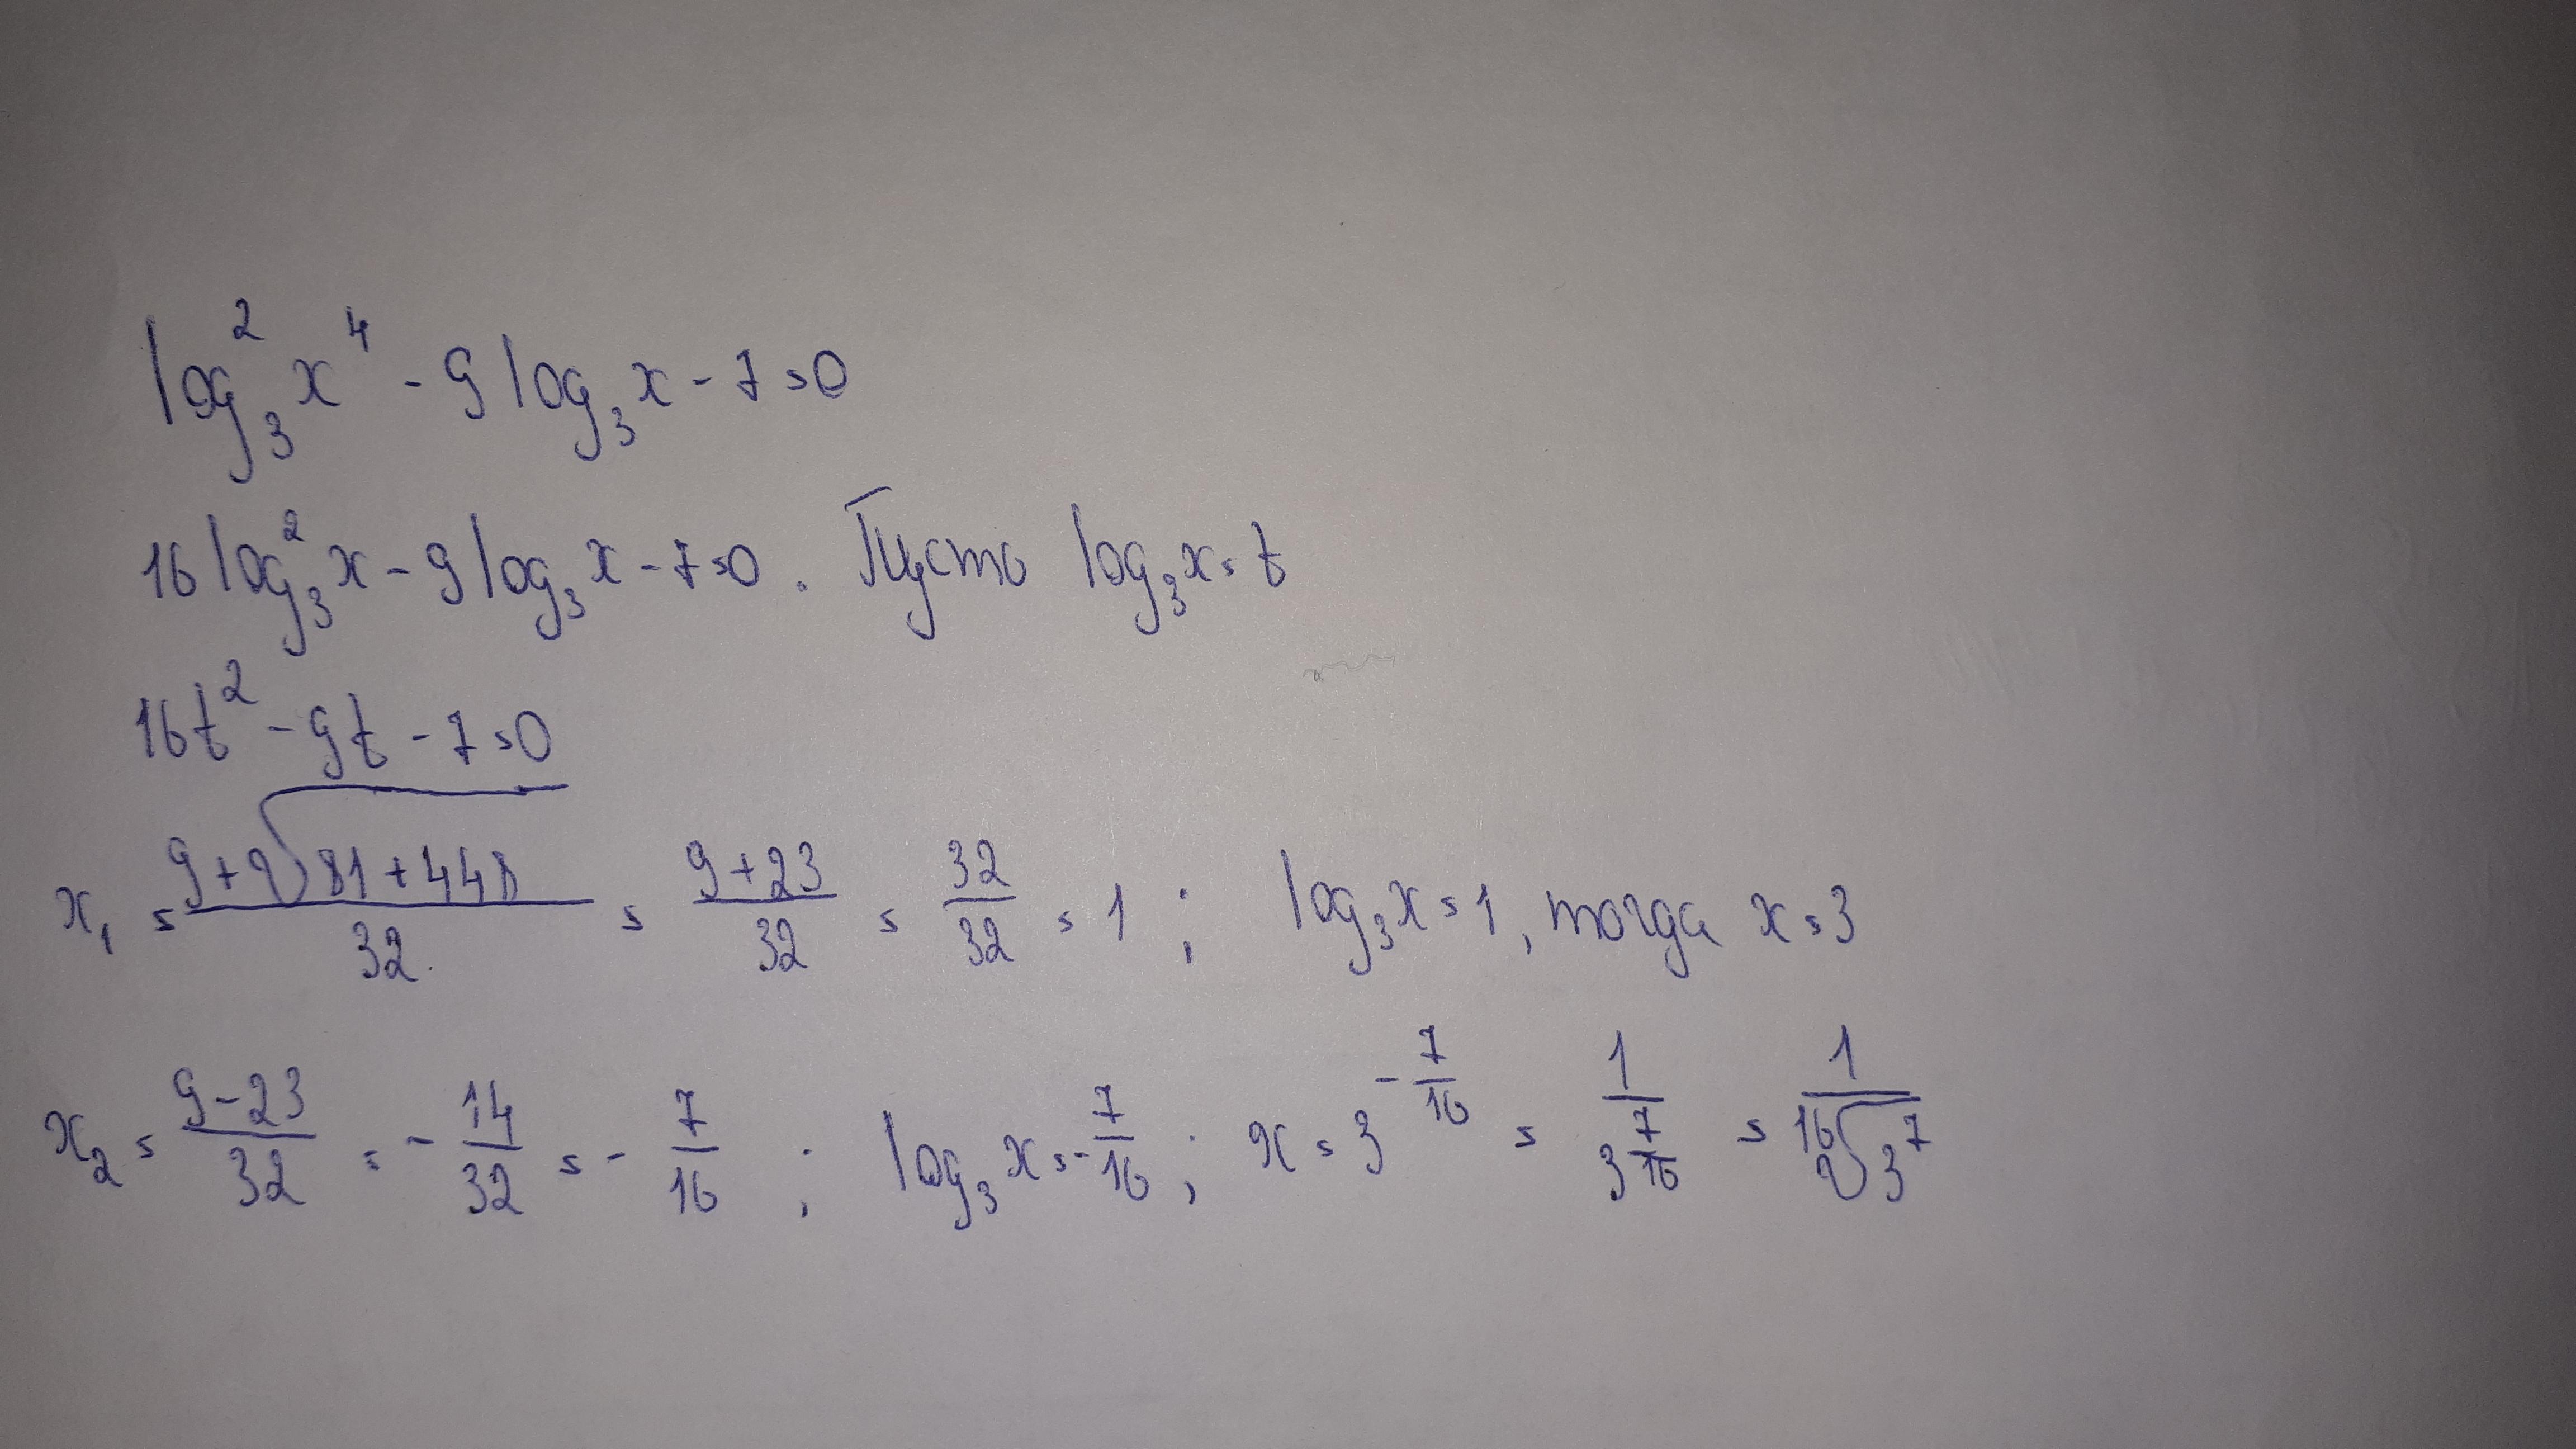 log₃²x⁴ - 9log₃x - 7 = 0
16log₃²x - 9log₃x - 7 = 0. Пусть log₃x = t
16t² - 9t - 7 = 0
x₁ = (9+√(81+448))/32 = (9+23)/32 = 32/32 = 1; log₃x = 1, тогда x = 3
x₂ = (9-23)/32 = -14/32 = -7/16; log₃x = -7/16; x = 3^(-7/16) = 1/3^(7/16) = 1/¹⁶√3⁷